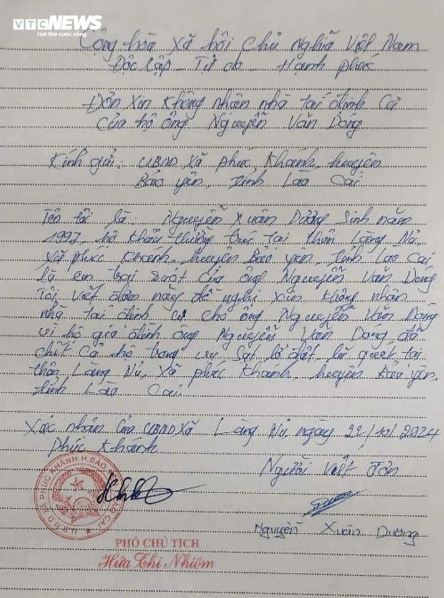 VTC NEWS
Cộng hòa Xã hội Chủ Nghĩa Việt Nam
Độc Lập - Tự do Hạnh phúc
Đơn Xin Không Nhận nhà tái định Cư
Của hộ ông Nguyễn Văn Dong
Kính gửi: UBND Xã Phúc Khánh, huyện
Bảo Yên, tỉnh Lào Cai
Tên tôi là Nguyễn Xuân Dương Sinh năm
1997 hộ khẩu thường trú tại thôn Làng Nủ,
Xã phúc khánh, huyện Bảo yên, tỉnh Lao Cai
là em trai ruột của ông Nguyễn Văn Dong
Tôi viết đơn này đề nghị xin không nhận
nhà tái định cư cho ông Nguyễn Văn Dong
vì hộ gia đình ông Nguyễn Văn Dong đã
chết cả hộ trong vụ sạt lở đất, lũ quét tại
thôn Làng Nủ, Xã phúc Khánh, huyện Bảo Yên,
tỉnh Lào Cai.
Xác nhận của UBND Xã Làng Nủ, ngày 22/10/2024
Phúc Khánh Người Viết Đơn
Nguyễn Xuân Dương
PHÓ CHỦ TỊCH
Hứa Thị Nhiệm